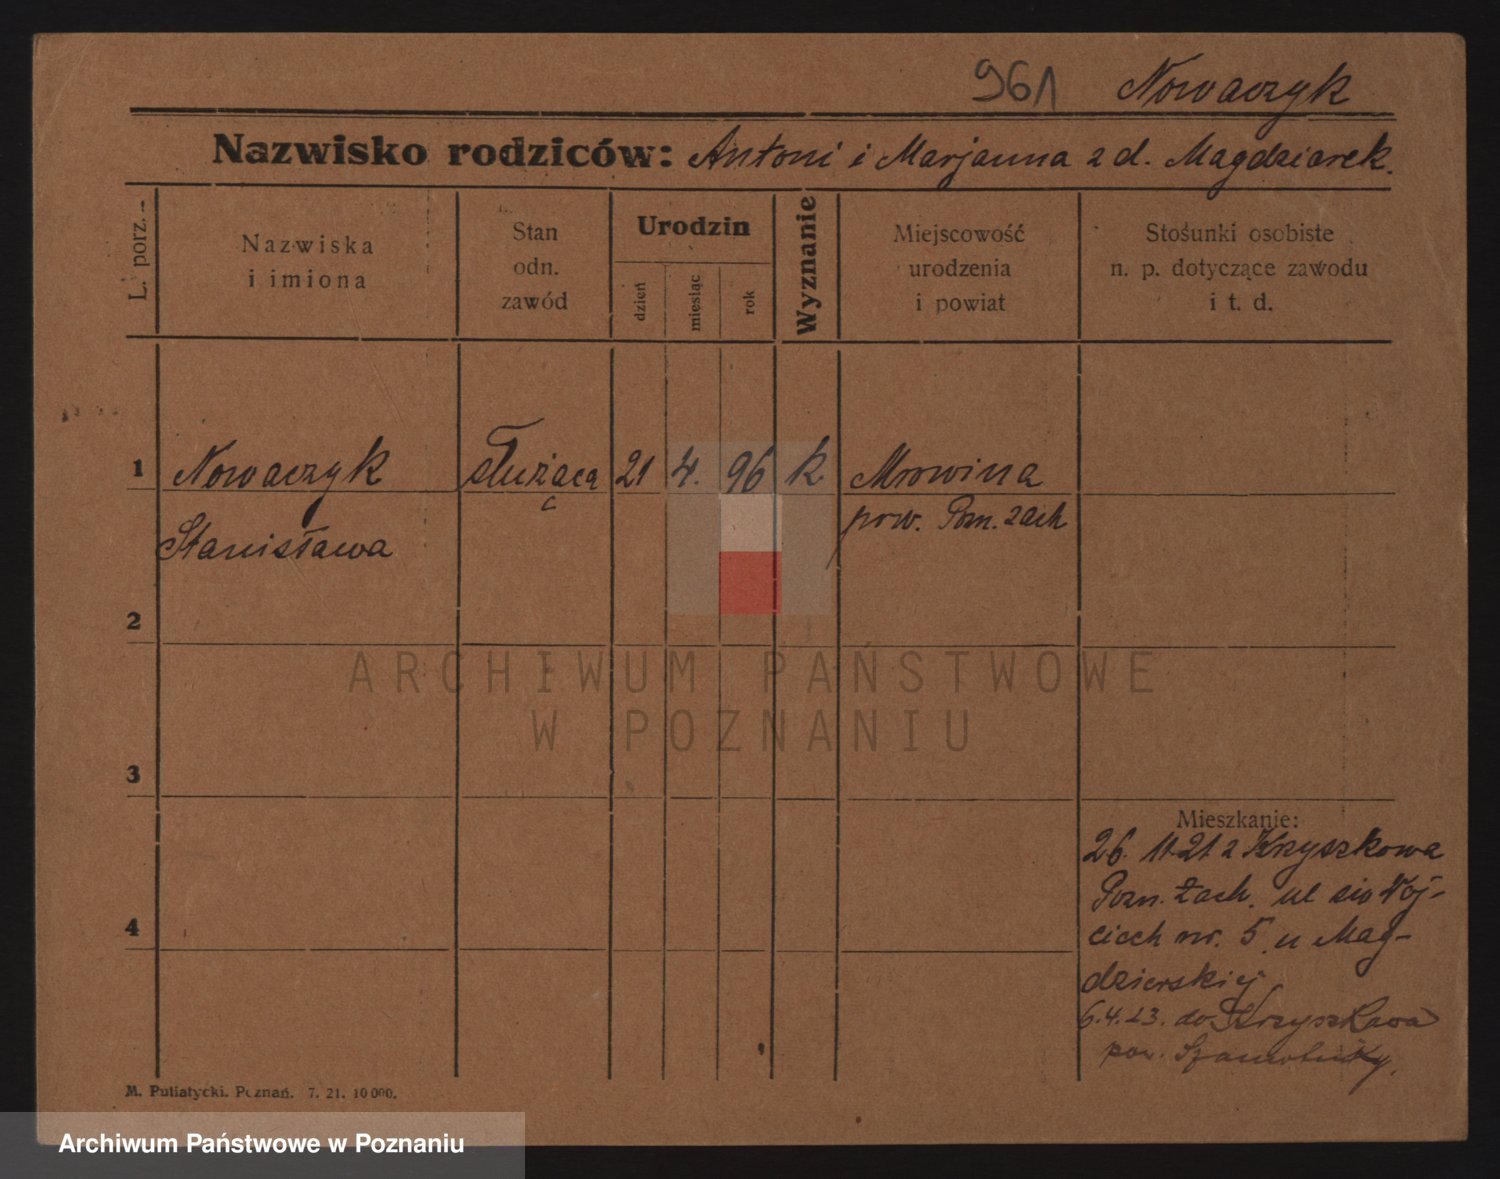 961 Nowaczyk
Nazwisko rodziców: Antoni i Marjanna z d. Magdziarek.
L. porz.
Nazwiska
i imiona
Stan
odn.
zawód
Urodzin
dzień
miesiąc
rok
Wyznanie
Miejscowość
urodzenia
i powiat
Stosunki osobiste
n. p. dotyczące zawodu
i t. d.
1 Nowaczyk służąca 21 4. 96 k. Mrowina
Stanisława pow. Pozn. zach
2
3
4
Mieszkanie:
26. 11 21 z Krzyszkowa
Pozn. Zach. ul św Woj-
ciech nr. 5 u Mag-
dzierskiej
6.4.23. do Krzyszkowa
pow. Szamotuły.
M. Putiatycki. Poznań. 7. 21. 10 000.
ARCHIWUM PAŃSTWOWE
W POZNANIU
Archiwum Państwowe w Poznaniu